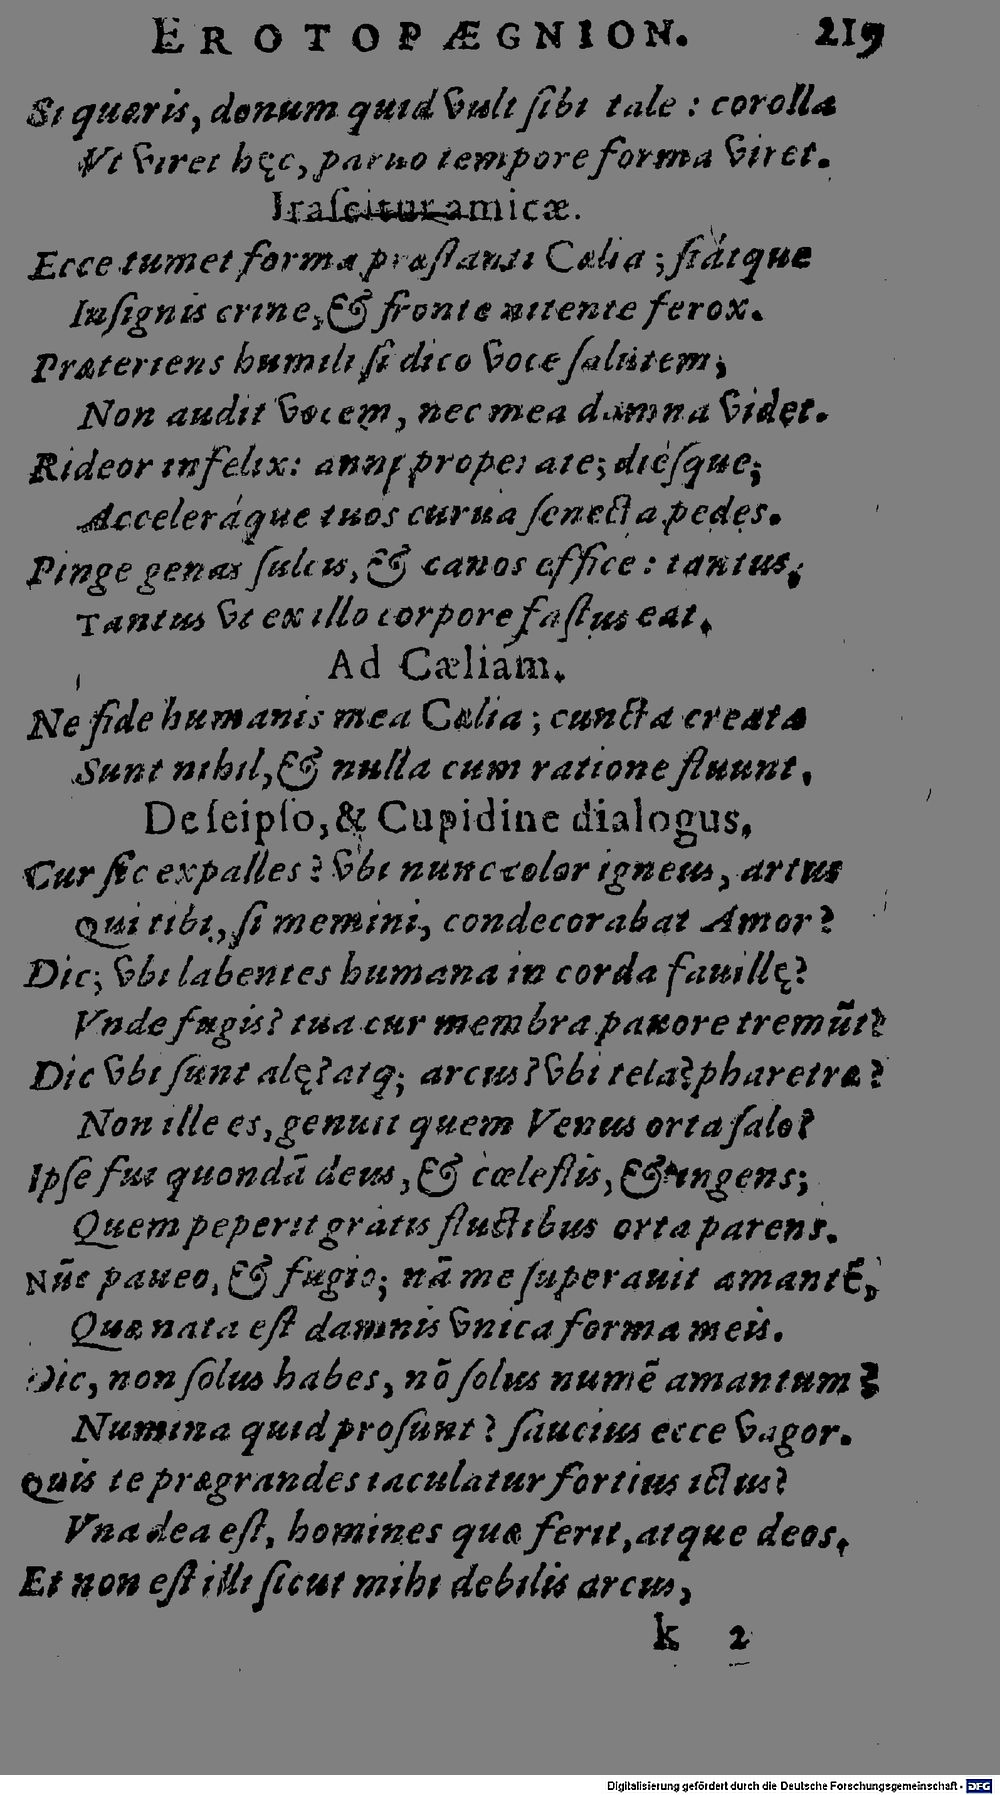 EROTOPÆGNION. 219
Si quæris, donum quid vult ſibi tale : corolla
Vt viret hęc, paruo tempore forma viret.
Iraſcitur amicæ.
Ecce tumet forma præſtanti Cælia ; ſtátque
Inſignis crine, & fronte nitente ferox.
Præteriens humili ſi dico voce ſalutem;
Non audit vocem, nec mea damna videt.
Rideor infelix: anni properate; diéſque;
Acceleráque tuos curua ſenecta pedes.
Pinge genas ſulcis, & canos effice : tantus,
Tantus vt ex illo corpore faſtus eat.
Ad Cæliam.
Ne fide humanis mea Cælia ; cuncta creata
Sunt nihil, & nulla cum ratione fluunt.
De ſeipſo, & Cupidine dialogus.
Cur ſic expalles? vbi nunc color igneus, artus
Qui tibi, ſi memini, condecorabat Amor?
Dic; vbi labentes humana in corda fauillę?
Vnde fugis? tua cur membra pauore tremũt?
Dic vbi ſunt alę? atq; arcus? vbi tela? pharetra?
Non ille es, genuit quem Venus orta ſalo?
Ipſe fui quondã deus, & cæleſtis, & ingens;
Quem peperit gratis fluctibus orta parens.
Nũc paueo, & fugio; nã me ſuperauit amantẽ,
Quæ nata eſt damnis vnica forma meis.
Dic, non ſolus habes, nõ ſolus numẽ amantum?
Numina quid proſunt? ſaucius ecce vagor.
Quis te prægrandes iaculatur fortius ictus?
Vna dea eſt, homines quæ ferit, atque deos.
Et non eſt illi ſicut mihi debilis arcus,
k 2
Digitalisierung gefördert durch die Deutsche Forschungsgemeinschaft - DFG